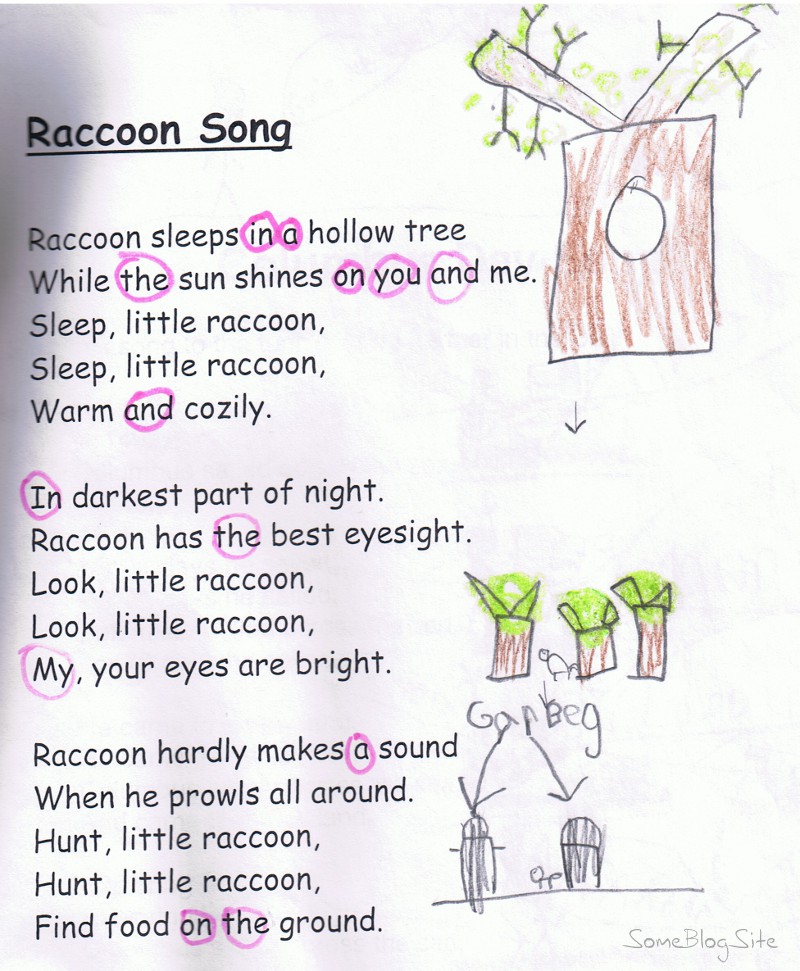 Raccoon Song
Raccoon sleeps in a hollow tree
While the sun shines on you and me.
Sleep, little raccoon,
Sleep, little raccoon,
Warm and cozily.
In darkest part of night.
Raccoon has the best eyesight.
Look, little raccoon,
Look, little raccoon,
My, your eyes are bright.
Garbeg
Raccoon hardly makes a sound
When he prowls all around.
Hunt, little raccoon,
Hunt, little raccoon,
Find food on the ground.
SomeBlogSite